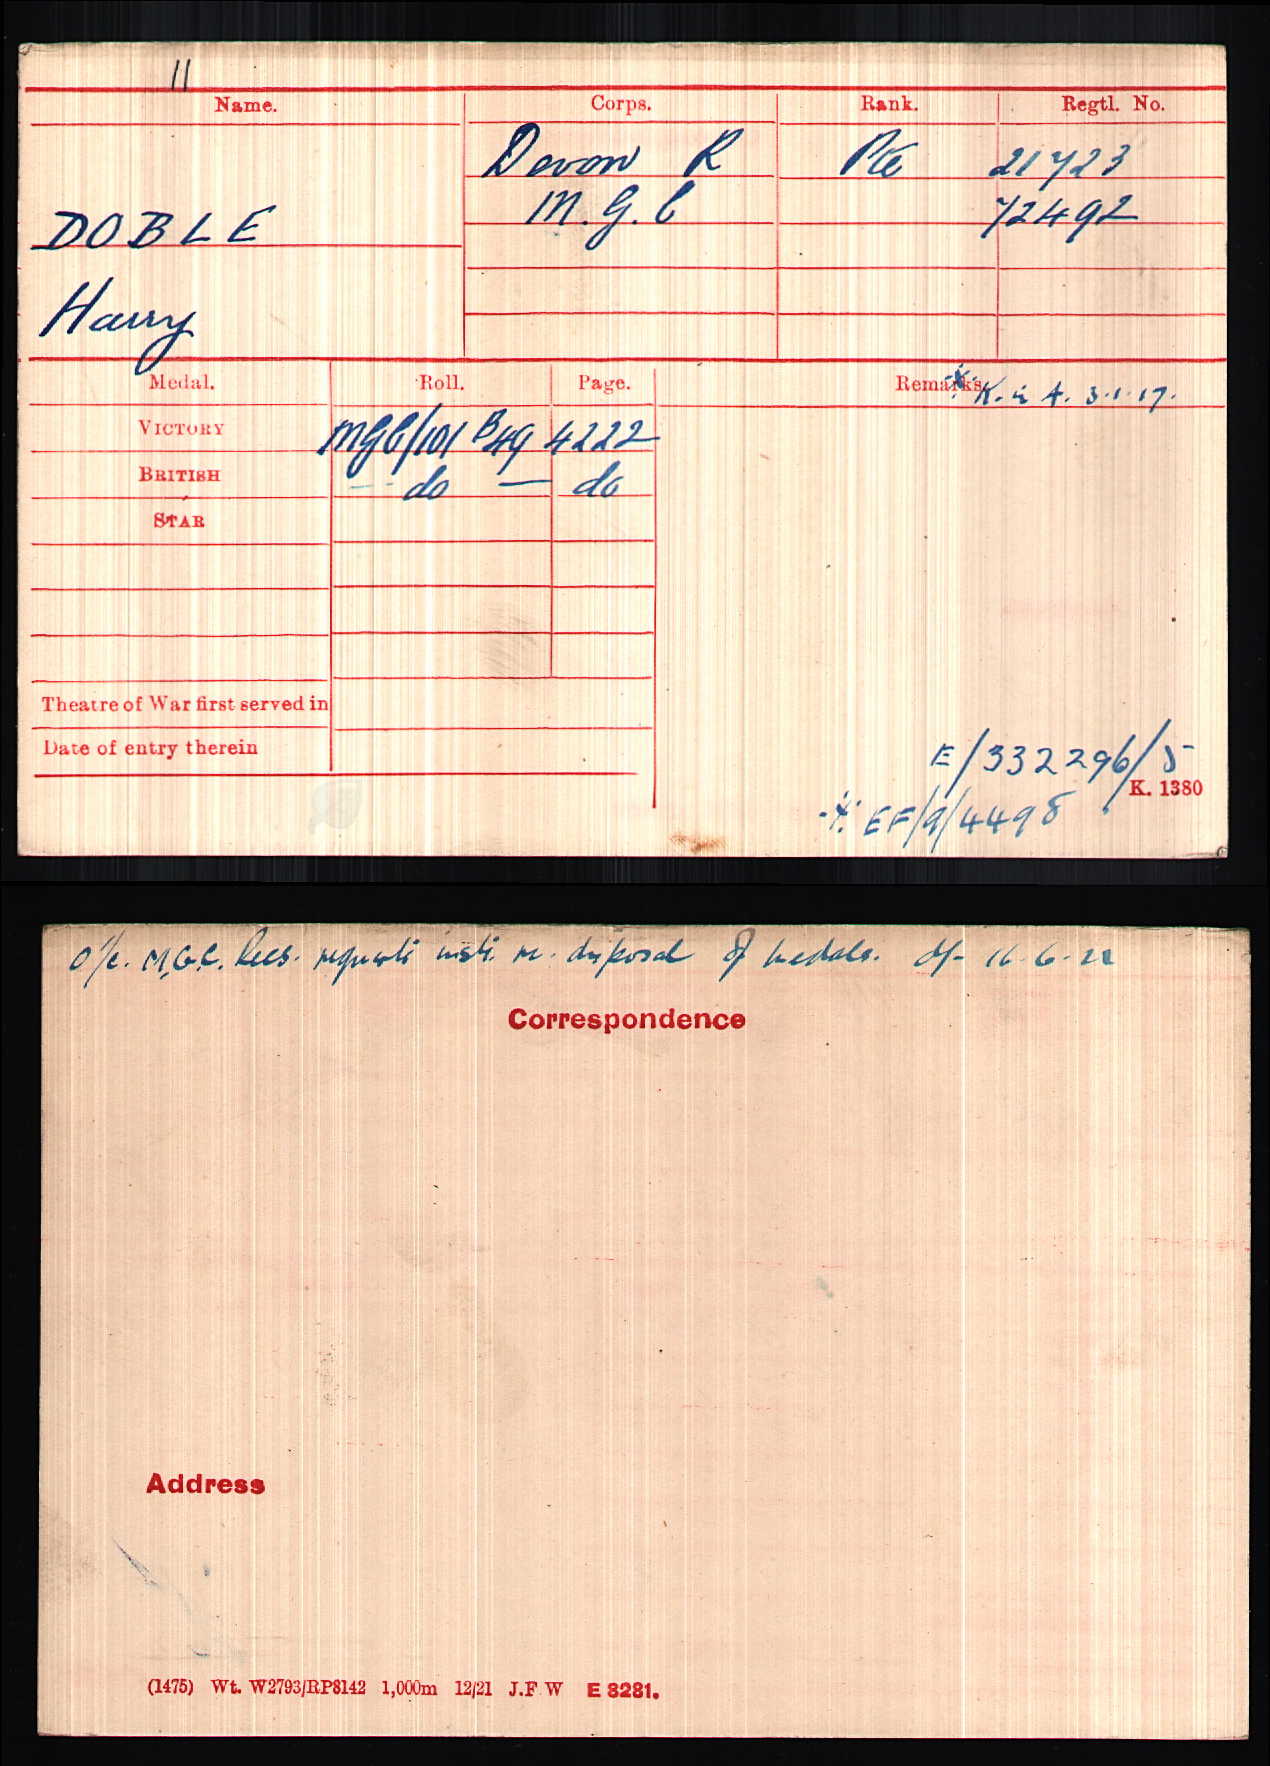 11
Name. Corps. Rank. Regtl. No.
Devon R Pte 21723
DOBLE M.G.C 72492
Harry
Medal. Roll. Page. Remarks
※ K. in A. 3.1.17.
VICTORY MGC/101 B49 4222
BRITISH — do — do
STAR
Theatre of War first served in
Date of entry therein
E/332296/5
K. 1380
※ EF/9/4498
O i/c. M.G.C. Recs. requests instr. re. disposal of medals. df-16-6-22
Correspondence
Address
(1475) Wt. W2793/RP8142 1,000m 12/21 J.F.W E 8281.